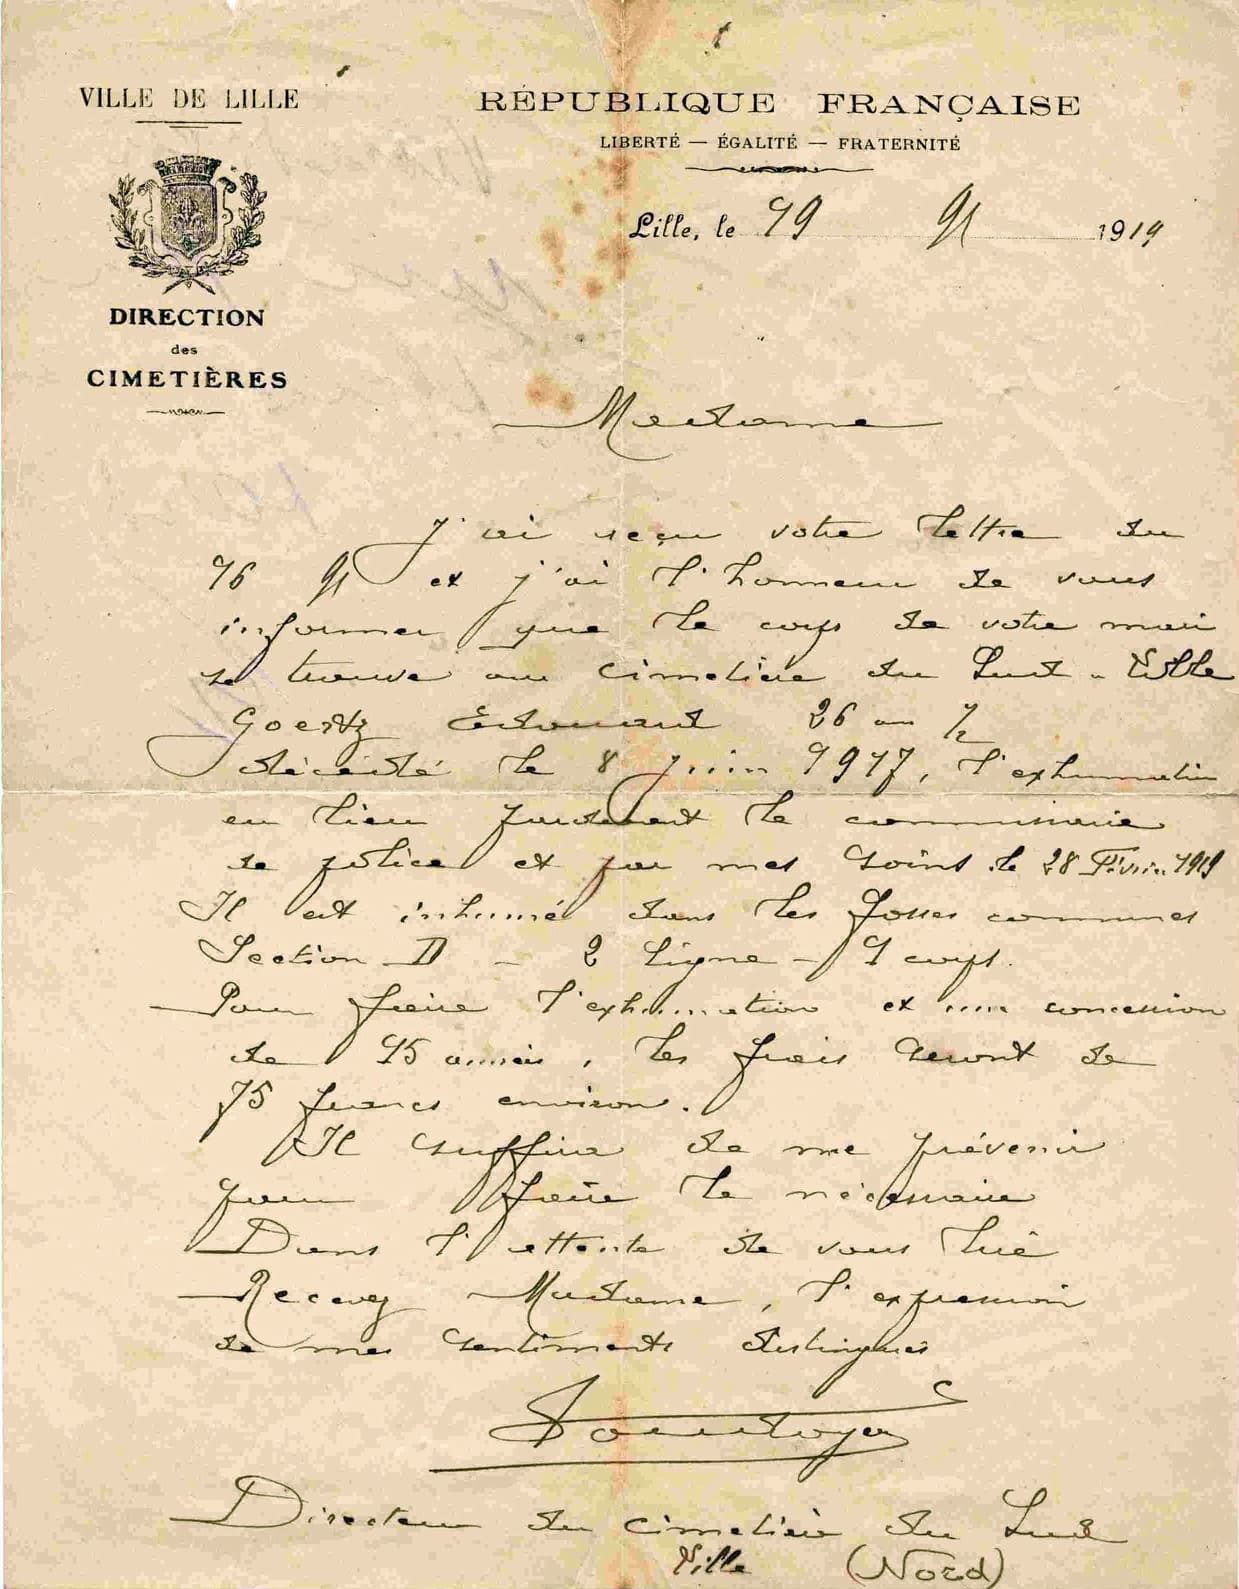 VILLE DE LILLE
RÉPUBLIQUE FRANÇAISE
LIBERTÉ — ÉGALITÉ — FRATERNITÉ
Lille, le 19 1919
DIRECTION
des
CIMETIÈRES
Madame
J'ai reçu votre lettre du
16 et j'ai l'honneur de vous
informer que le corps de votre mari
se trouve au cimetière du Sud - Lille
Goertz Edouard 26 an ½
décédé le 8 juin 1917, l'exhumation
eu lieu le commissaire
de police et par mes soins le 28 Février 1919
Il est inhumé dans les fosses communes
Section D - 2 Ligne - 1 corps.
Pour faire l'exhumation et une concession
de 15 années, les frais seront de
75 francs environ.
Il suffira de me prévenir
pour faire le nécessaire
Dans l'attente de vous lire
Recevez Madame, l'expression
de mes sentiments distingués
Directeur du cimetière du Sud
Lille (Nord)